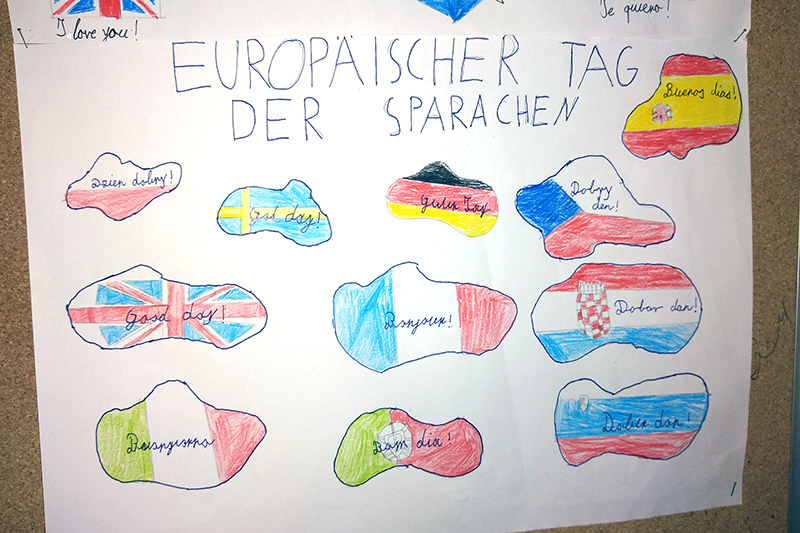 I love you!
Te quiero!
EUROPÄISCHER TAG
DER SPARACHEN
Buenos días!
Dzien dobry!
God day!
Guten Tag
Dobry
den!
Good day!
Bonjour!
Dobar dan!
Buongiorno
Bom dia!
Dober dan!